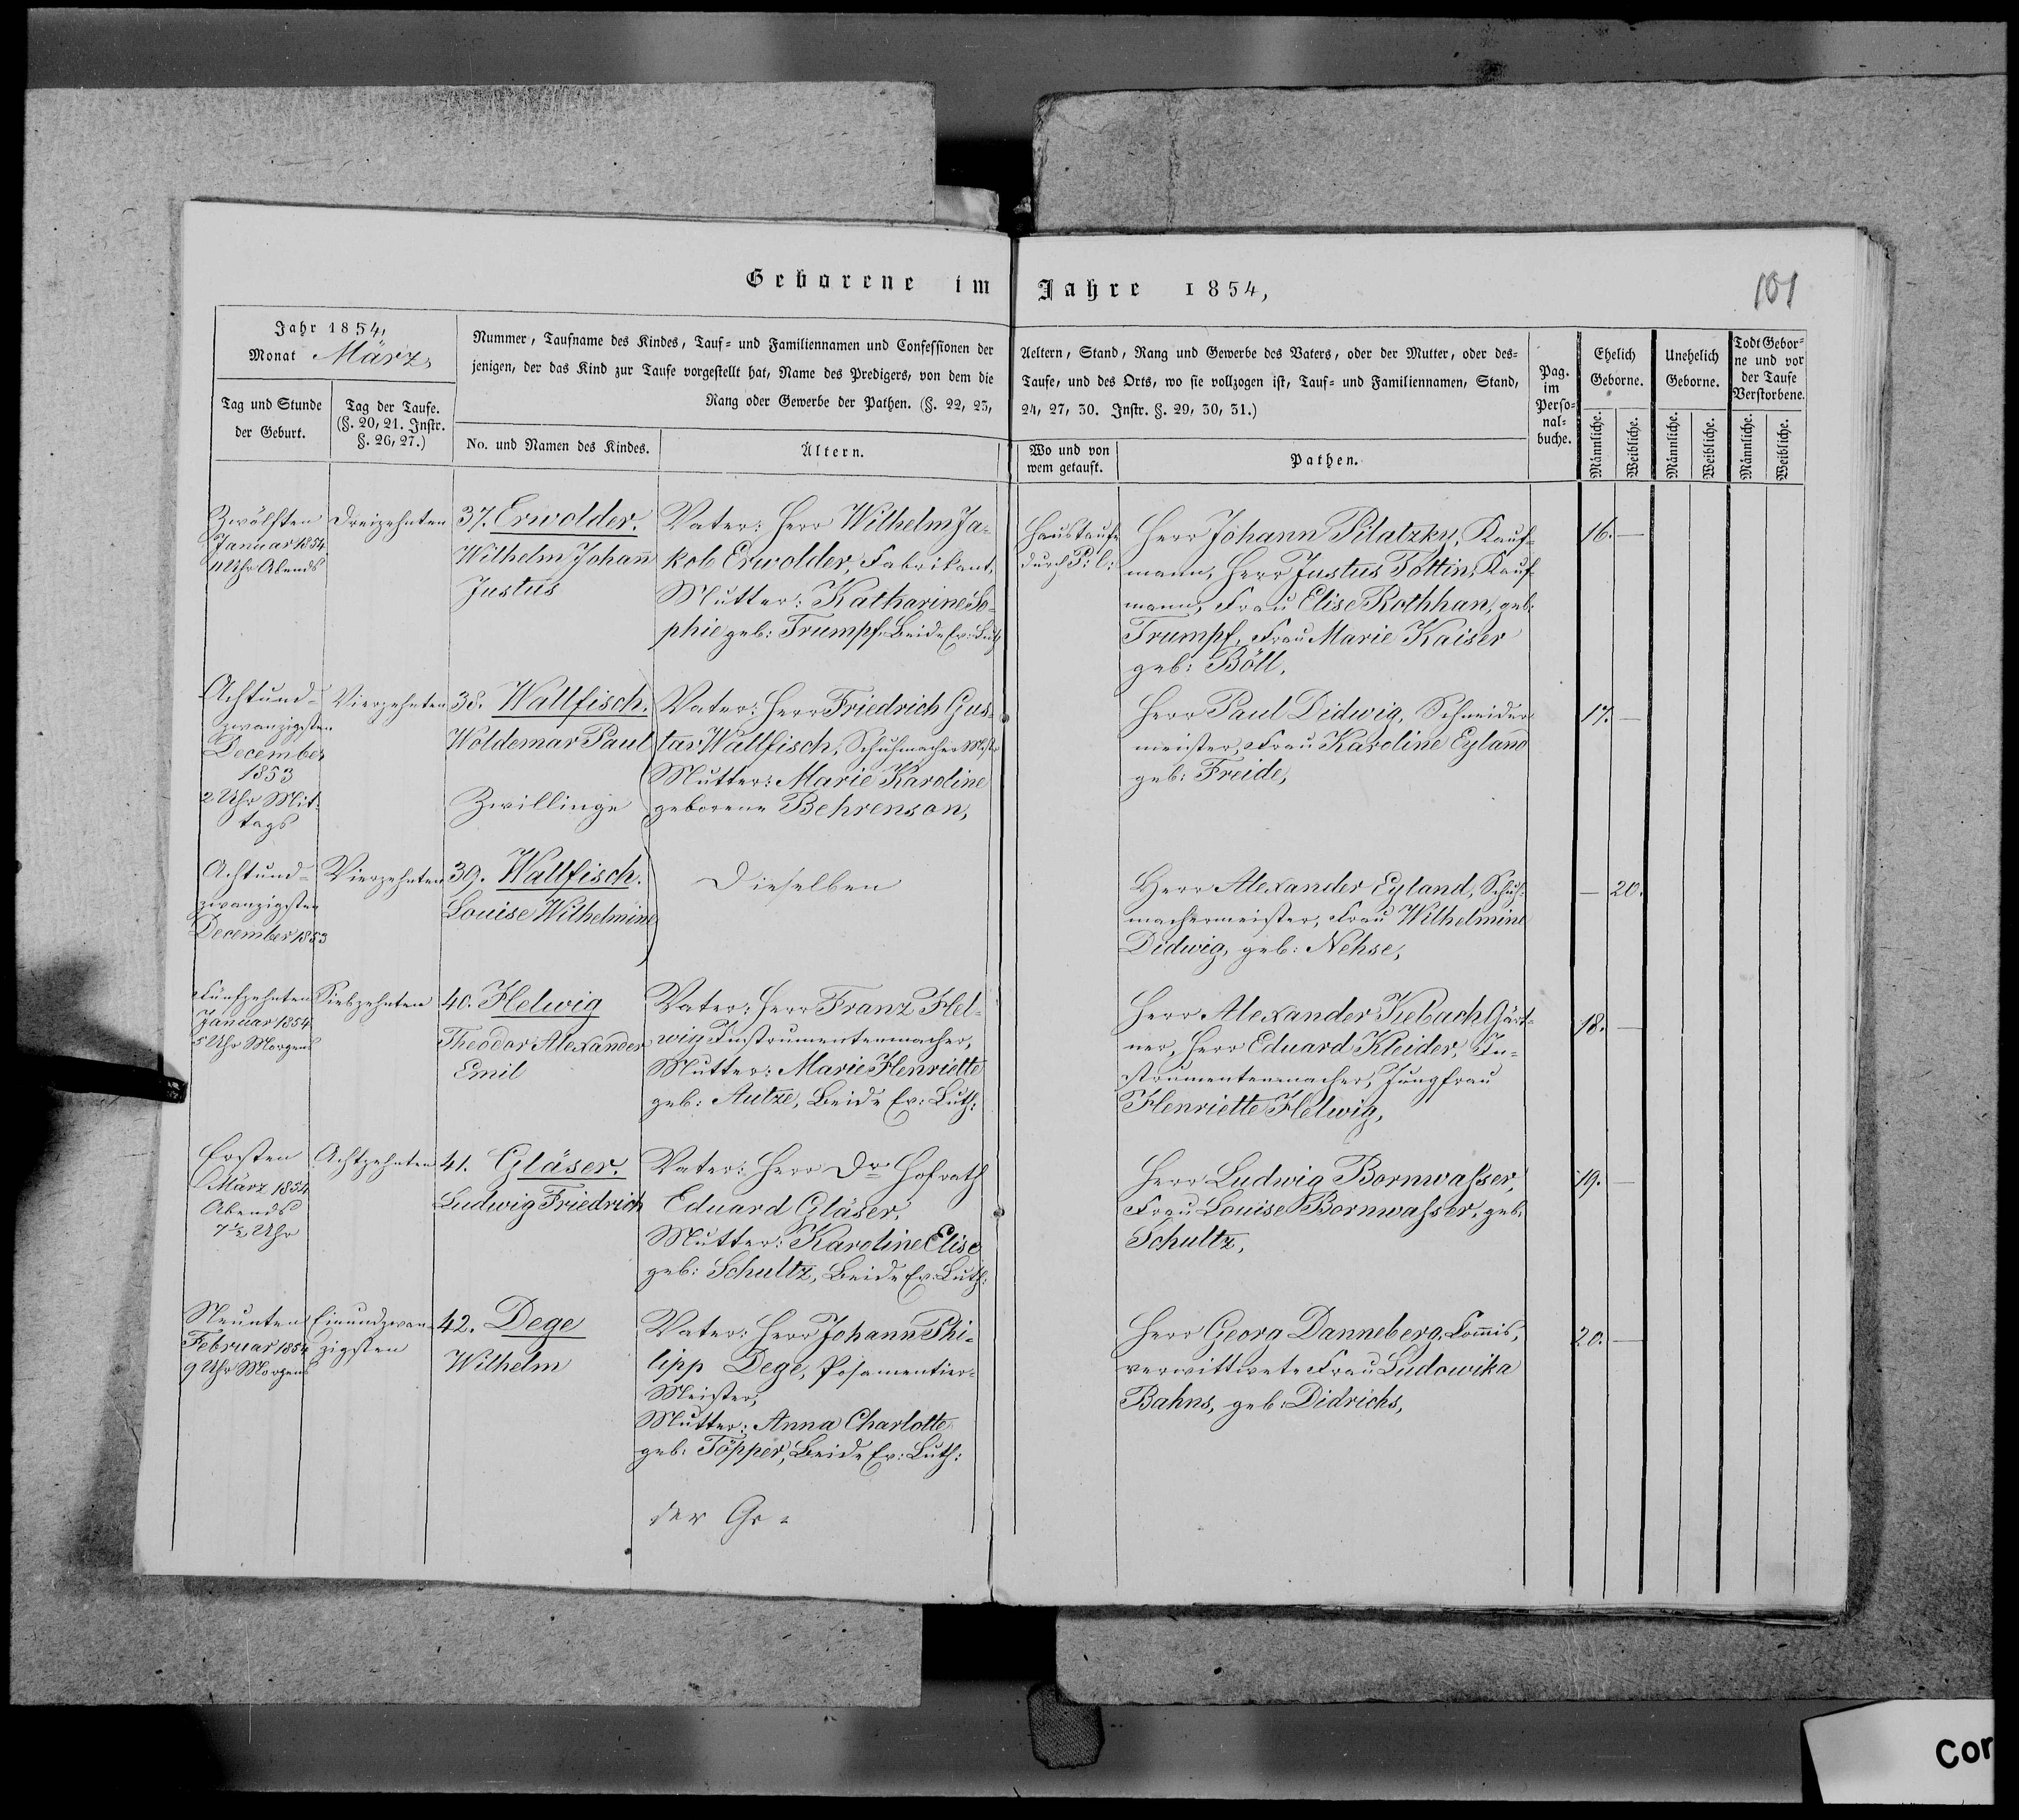 Geborene im Jahre 1854,
101
Jahr 1854,
Monat März,
Tag und Stunde
der Geburt.
Tag der Taufe.
(§. 20, 21. Instr.
§. 26, 27.)
Nummer, Taufname des Kindes, Tauf- und Familiennamen und Confessionen der
jenigen, der das Kind zur Taufe vorgestellt hat, Name des Predigers, von dem die
Rang oder Gewerbe der Pathen. (§. 22, 23,
No. und Namen des Kindes.
Ältern.
Aeltern, Stand, Rang und Gewerbe des Vaters, oder der Mutter, oder des-
Taufe, und des Orts, wo sie vollzogen ist, Tauf- und Familiennamen, Stand,
24, 27, 30. Instr. §. 29, 30, 31.)
Wo und von
wem getauft.
Pathen.
Pag.
im
Perso-
nal-
buche.
Ehelich
Geborne.
Männliche.
Weibliche.
Unehelich
Geborne.
Männliche.
Weibliche.
Todt Gebor-
ne und vor
der Taufe
Verstorbene.
Männliche.
Weibliche.
Zwölften
Januar 1854
11 Uhr Abends
Dreizehnten
37. Erwolder.
Wilhelm Johann
Justus
Vater: Herr Wilhelm Ja-
kob Erwolder, Fabrikant,
Mutter: Katharine So-
phie geb: Trumpf. Beide Ev: Luth
Haustaufe
durch P: l:
Herr Johann Pilatzky, Kauf-
mann, Herr Justus Tottin, Kauf
mann, Frau Elise Rothhan, geb:
Trumpf, Frau Marie Kaiser
geb: Böll.
16. —
Achtund-
zwanzigsten
December
1853
2 Uhr Mit-
tags
Vierzehnten
38. Wallfisch.
Woldemar Paul
Zwillinge
Vater: Herr Friedrich Gus-
tav Wallfisch, Schuhmacher Mstr
Mutter: Marie Karoline
geborene Behrenson,
Herr Paul Didwig, Schneider
meister, Frau Karoline Eyland
geb: Freide,
17. —
Achtund-
zwanzigsten
December 1853
Vierzehnten
39. Wallfisch.
Louise Wilhelmine
Dieselben
Herr Alexander Eyland, Schuh-
machermeister, Frau Wilhelmine
Didwig, geb: Nehse,
— 20.
Fünfzehnten
Januar 1854
5 Uhr Morgens
Siebzehnten
40. Helwig
Theodor Alexander
Emil
Vater: Herr Franz Hel-
wig Instrumentenmacher,
Mutter: Marie Henriette
geb: Autze, Beide Ev: Luth:
Herr Alexander Kiebach Gärt-
ner, Herr Eduard Kleider, In-
strumentenmacher, Jungfrau
Henriette Helwig,
18. —
Ersten
März 1854
Abends
7½ Uhr
Achtzehnten
41. Gläser.
Ludwig Friedrich
Vater: Herr Dr Hofrath
Eduard Gläser,
Mutter: Karoline Elise
geb: Schultz, Beide Ev: Luth:
Herr Ludwig Bornwasser,
Frau Louise Bornwasser, geb:
Schultz,
19. —
Neunten
Februar 1854
9 Uhr Morgens
Einundzwan-
zigsten
42. Dege
Wilhelm
Vater: Herr Johann Phi-
lipp Dege, Posamentier-
Meister,
Mutter: Anna Charlotte
geb: Töpper, Beide Ev: Luth:
Herr Georg Danneberg, Commis,
verwittwete Frau Ludowika
Bahns, geb: Didrichs,
20. —
der Ge-
Cor